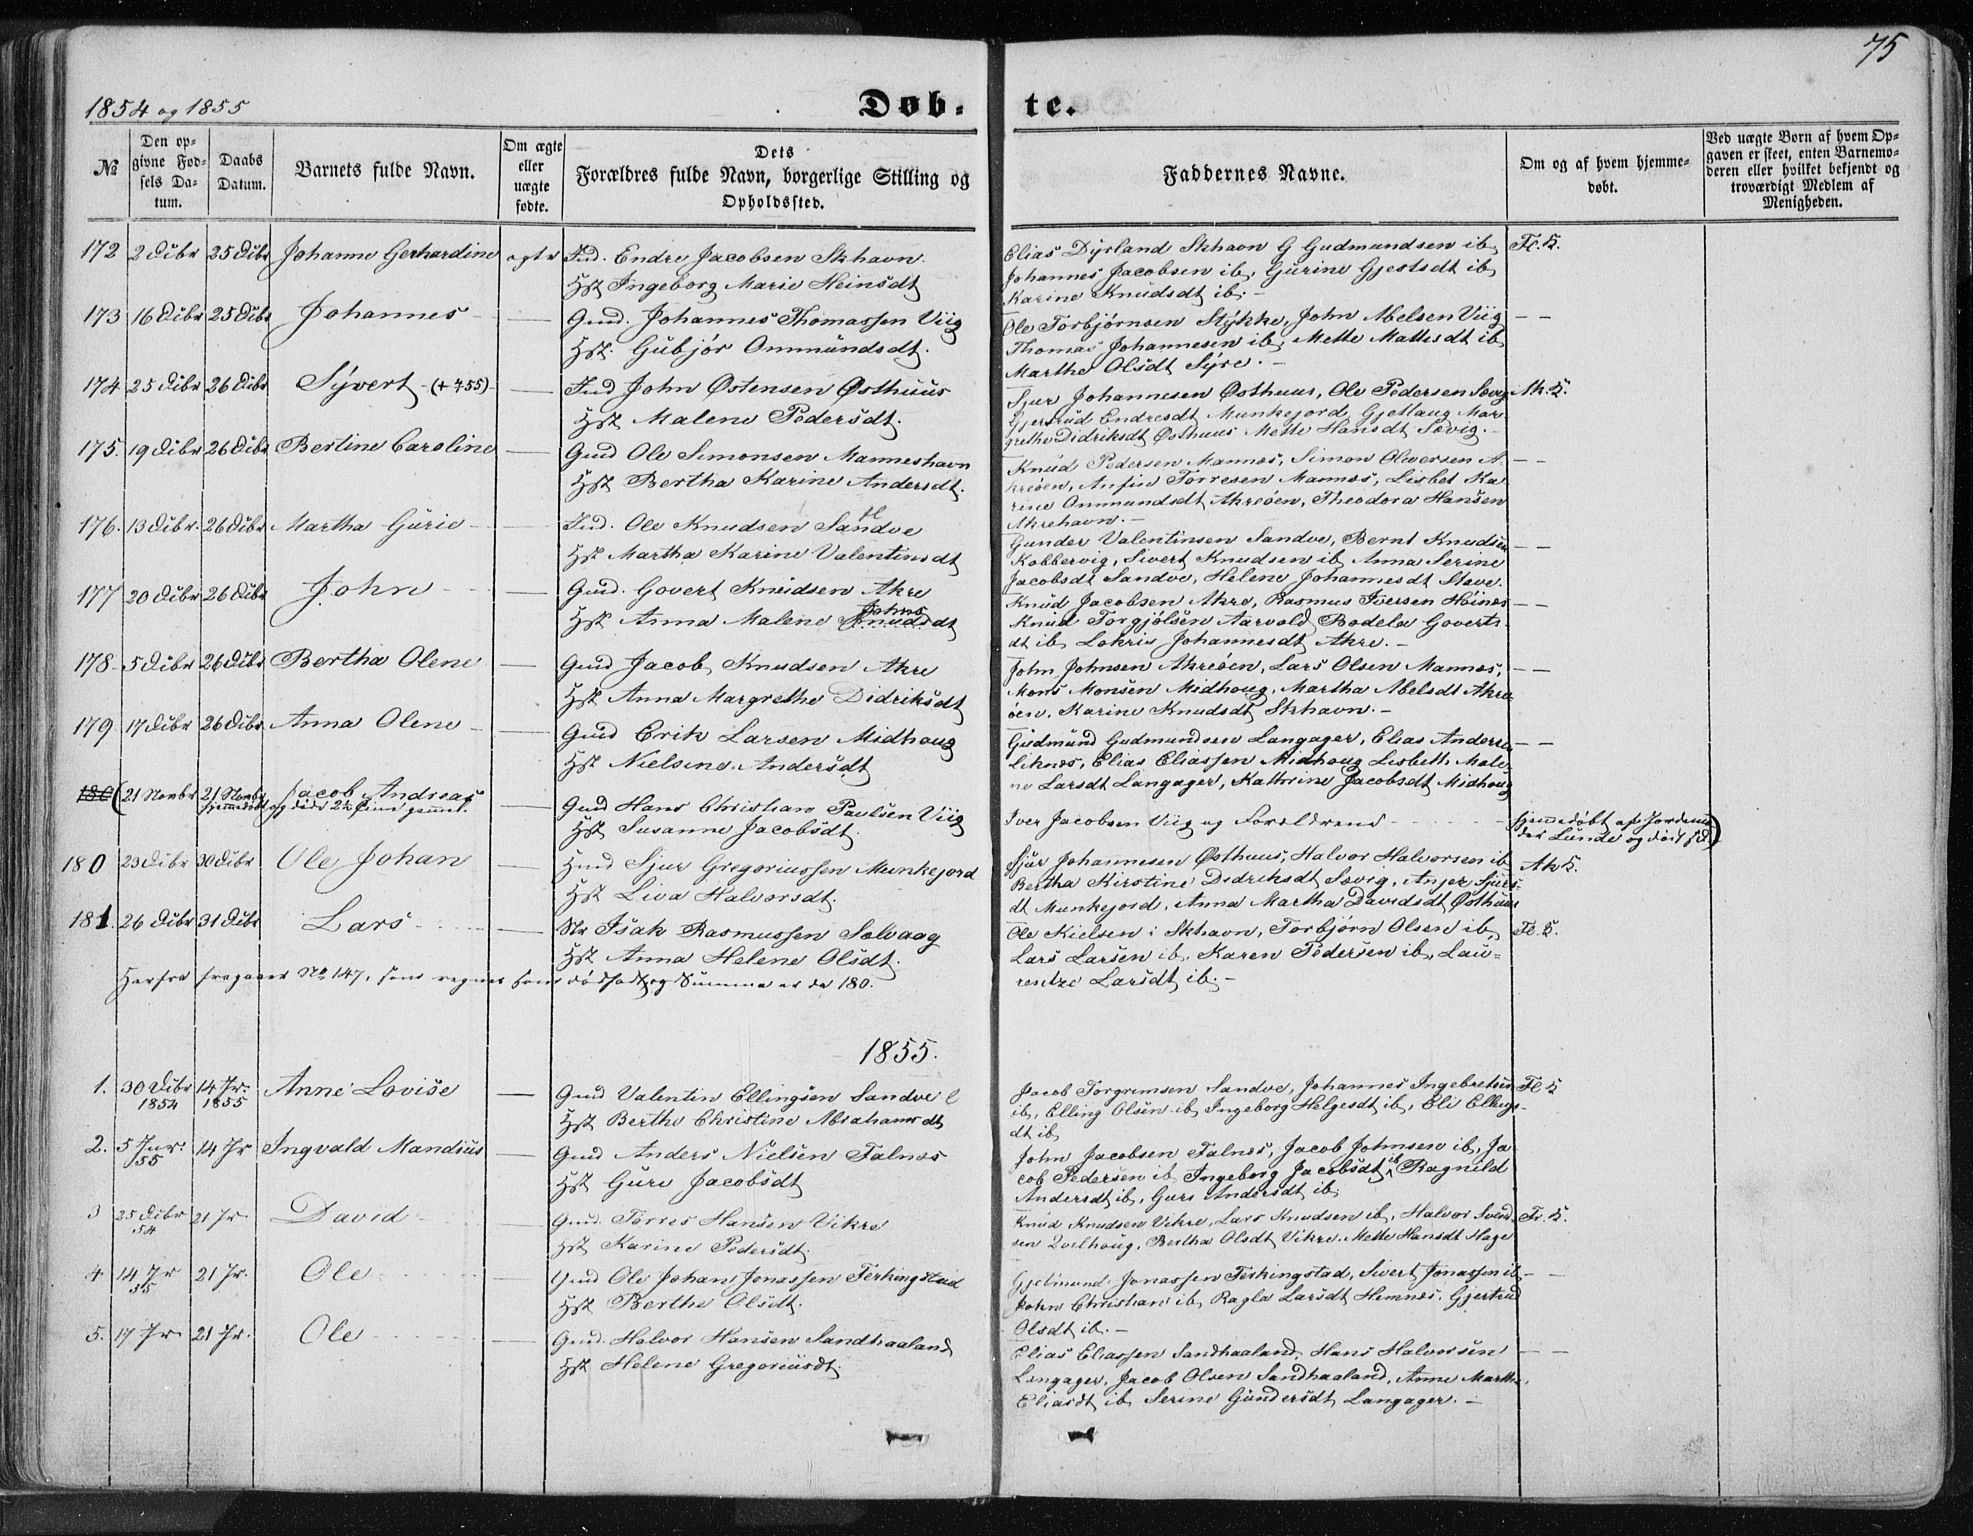 75
1854 og 1855
Døb-
te.
№
Den op-
givne Fød-
sels Da-
tum.
Daabs
Datum.
Barnets fulde Navn.
Om ægte
eller
uægte
fødte.
Dets
Forældres fulde Navn, borgerlige Stilling og
Opholdssted.
Faddernes Navne.
Om og af hvem hjemme-
døbt.
Ved uægte Børn af hvem Op-
gaven er skeet, enten Barnemo-
deren eller hvilket bekjendt og
troværdigt Medlem af
Menigheden.
172 2 Dcbr 25 Dcbr Johanne Gerhardine ægte Ind. Endre Jacobsen Skhavn.
Hst Ingeborg Marie Heinsdt
Elias Dyrland Skhavn G Gudmundsen ib,
Johannes Jacobsen ib, Gurine Gjestsdt ib,
Karine Knudsdt ib,-
173 16 Dcbr 25 Dcbr Johannes - — Gmd. Johannes Thomassen Viig
Hst. Gubjør Ommundsdt.
Ole Torbjørnsen Stykke, John Abelsen Viig - -
Thomas Johannesen ib, Mette Mattesdt ib
Marthe Olsdt Syre. -
174 25 Dcbr 26 Dcbr Syvert - (+ 55) — Ind John Østensen Østhuus
Hst Malene Pedersdt.
Sjur Johannesen Østhuus, Ole Pedersen Sævig Ak. K.
Gjertrud Endresdt Munkejord, Gjetlaug Mar-
grethe Didriksdt Østhuus Mette Hansdt Sævig.-
175. 19 Dcbr 26 Dcbr Bertine Caroline — Gmd Ole Simonsen Manneshavn
Hst Bertha Karine Andersdt.
Knud Pedersen Mannes, Simon Oliversen A- - -
kreøen, Anfin Torresen Mannes, Lisbet Ka
rine Ommundsdt Akreøen, Theodora Hansen
Akrehavn.-
176. 13 Dcbr. 26 Dcbr Martha Gurie - — Ind. Ole Knudsen Sandve
Hst Martha Karine Valentinsdt
Gunder Valentinsen Sandve, Bernt Knudsen - -
Kobbervig, Sivert Knudsen ib Anna Serine
Jacobsdt Sandve, Helene Johannesdt Stave.
177 20 Dcbr 26 Dcbr John - — Gmd. Govert Knudsen Akre
Hst Anna Malene Johns Knudsdt
Knud Jacobsen Akre, Rasmus Iversen Høines - -
Knud Torgjølsen Aarvold, Bodela Goverts-
dt ib, Johannesdt Akre. -
178. 5 Dcbr 26 Dcbr Bertha Olene — Gmd Jacob Knudsen Akre
Hst Anna Margrethe Didriksdt
John Johnsen Akreøen, Lars Olsen Mannes, - -
Mons Monsen Midhoug, Martha Abelsdt Akre
øen. Karine Knudsdt Skhavn. -
179 17 Dcbr 26 Dcbr Anna Olene - — Gmd Erik Larsen Midhoug
Hst Nielsine Andersdt
Gudmund Gudmundsen Langager, Elias Anderse - -
liknes, Elias Eliassen Midhoug Lisbeth Male-
ne Larsdt Langager, Kathrine Jacobsdt Midhoug
180 ( 21 Novbr 21 Novbr Jacob Andreas
hjemmedøbt og døde 2½ Time gammel.
Gmd Hans Christian Paulsen Viig
Hst Susanne Jacobsdt.
Iver Jacobsen Viig og Forældrene - - - hjemmedøbt af Jordemo-
der Lunde og død )
180 23 Dcbr 30 Dcbr Ole Johan — Hmd Sjur Gregoriussen Munkejord
Hst Liva Halvorsdt.
Sjur Johannesen Østhuus, Halvor Halvorsen ib Ak K.
Bertha Kirstine Didriksdt Sævig, Anjer Sjurs-
dt Munkejord, Anna Martha Davidsdt Østhuus
181. 26 Dcbr 31 Dcbr Lars - — Str Isak Rasmussen Solvaag
Hst Anna Helene Olsdt.
Ole Nielsen i Skhavn, Torbjørn Olsen ib, Fl. K.
Lars Larsen ib. Karen Pedersen ib, Lau-
rentze Larsdt ib. -
Herfra fragaaer No 147, som regnes som dødfødt og Summa er da 180.
1855.
1. 30 Dcbr 1854 14 Jr. 1855 Anne Lovise — Gmd Valentin Ellingsen Sandve
Hst Berthe Christine Abrahamsdt
Jacob Torgrimsen Sandve, Johannes Ingebretsen Fl K
ib, Elling Olsen ib Ingeborg Helgesdt ib, Eli Ellings-
dt ib,
2. 5 Jnr. 55 14 Jr Ingvald Mandius — Gmd Anders Nielsen Falnes
Hst Guri Jacobsdt
John Jacobsen Falnes, Jacob Johnsen ib, Ja
cob Pedersen ib Ingeborg Jacobsdt ib Ragnild
Andersdt ib, Guri Andersdt ib,
3 25 Dcbr 54 21 Jr. David - — Gmd. Torres Hansen Vikre
Hst Karine Pedersdt.
Knud Knudsen Vikre, Lars Knudsen ib, Halvor Svend- Fr. K.
sen Qvelhoug, Bertha Olsdt Vikre. Mette Hansdt Hage
4 14 Jr 55 21 Jr. Ole - — Gmd Ole Johan Jonassen Ferkingstad
Hst Berthe Olsdt.
Gjetmund Jonassen Ferkingstad, Sivert Jonassen ib - -
John Christian ib, Ragla Larsdt Hemnes. Gjertrud
Olsdt ib. -
5. 17 Jr. 21 Jr. Ole - — Gmd. Halvor Hansen Sandhaaland
Hst Helene Gregoriusdt.
Elias Eliassen Sandhaaland, Hans Halvorsen - -
Langager, Jacob Olsen Sandhaaland, Anne Marthe
Eliasdt ib, Serine Gundersdt Langager. -